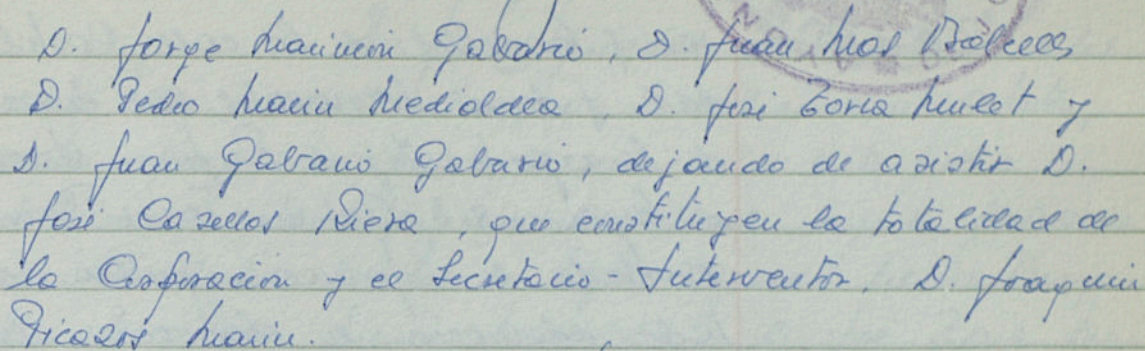 D. Jorge Marimón Gabarró, D. Juan Mas Bófies
D. Pedro Marin Mediolea, D. José Torra Mulet y
D. Juan Gabarró Gabarró, dejando de asistir D.
José Casellas Riera, que constituyen la totalidad de
la Corporación y el Secretario-Interventor, D. Joaquin
Picazos Marin.